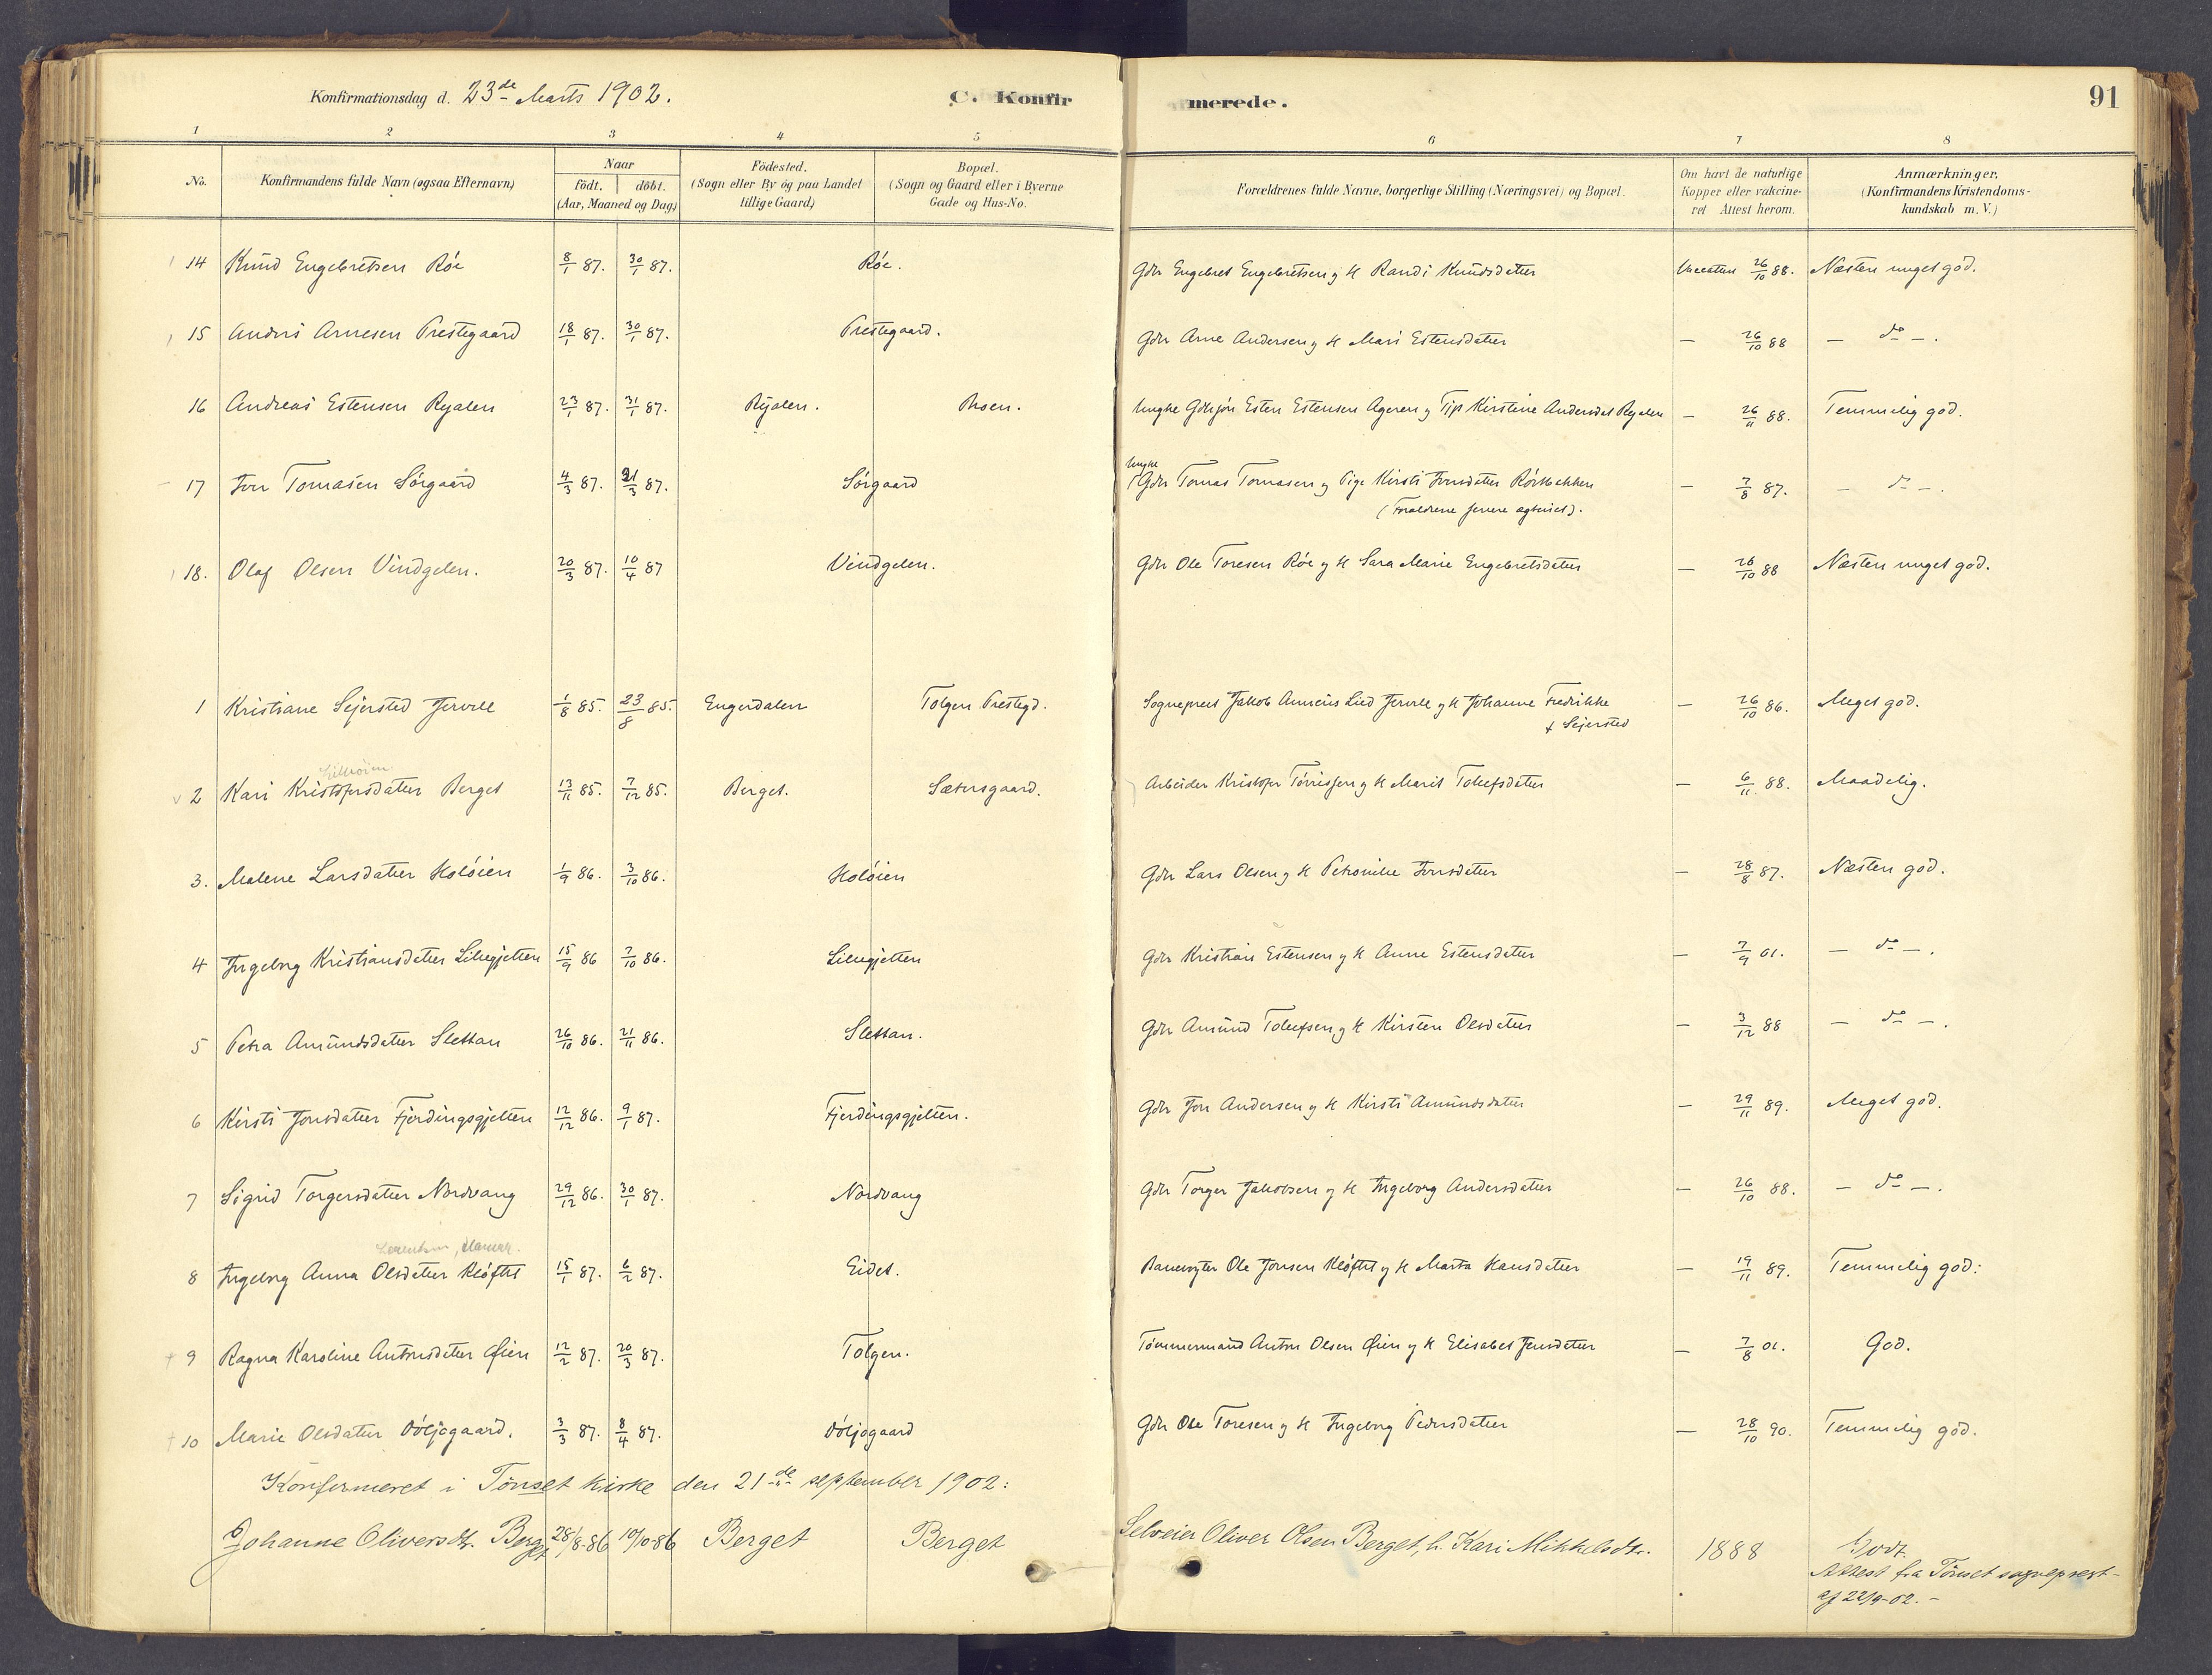 Konfirmationsdag d. 23de Marts 1902.
C. Konfirmerede.
91
1 2 3 4 5 6 7 8
No.
Konfirmandens fulde Navn (ogsaa Efternavn)
Naar
födt. döbt.
(Aar, Maaned og Dag)
Födested.
(Sogn eller By og paa Landet
tillige Gaard)
Bopæl.
(Sogn og Gaard eller i Byerne
Gade og Hus-No.
Forældrenes fulde Navne, borgerlige Stilling (Næringsvei) og Bopæl.
Om havt de naturlige
Kopper eller vakcine-
ret Attest herom.
Anmærkninger.
(Konfirmandens Kristendoms-
kundskab m. V.)
14 Knud Engebretsen Röe 8/1 87. 30/1 87. Röe. Gdbr Engebret Engebretsen og H Randi Knudsdatter 26/10 88. Næsten meget god.
15 Anders Arnesen Prestegaard 18/1 87. 30/1 87. Prestegaard. Gdbr Arne Andersen og H Mari Estensdatter — 26/10 88 — do —.
16 Andreas Estensen Ryalen 23/1 87. 31/1 87. Ryalen. Moen. Ungke Esten Estensen og Kirstine Andersdat Ryalen — 26/11 88. Temmelig god.
Ungke
17 Jon Tomasen Sörgaard 4/3 87. 21/3 87. Sörgaard Gdbr Tomas Tomasen og Pige Kirsti Jonsdatter — 7/8 87. — do —.
(Forældrene senere ægteviet).
18. Olaf Olsen Vindgelen. 20/3 87. 10/4 87 Vindgelen. Gdbr Ole Toresen Röe og H Sara Marie Engebretsdatter — 26/10 88 Næsten meget god.
1 Kristiane Sejersted Jervell 1/8 85. 23/8 85. Engerdalen Tolgen Prestegd. Sogneprest Jakob Lied Jervell og H Johanne Fredrikke — 26/10 86. Meget god.
f Sejersted
2 Kari Kristofersdatter Berget 13/11 85. 7/12 85. Berget. Sætersgaard. Arbeider Kristofer Törrissen og H Marit Tollefsdatter — 6/11 88. Maadelig.
3. Malene Larsdatter Holöien 1/9 86. 3/10 86. Holöien Gdbr Lars Olsen og H Petronille Jonsdatter — 28/8 87. Næsten god.
4 Ingeborg Kristiansdatter Lillegjelten 15/9 86 7/10 86. Lillegjelten Gdbr Kristian Estensen og H Anne Estensdatter — 7/9 01. — do —.
5 Petra Amundsdatter Slettan 26/10 86. 21/11 86. Slettan. Gdbr Amund Tollefsen og H Kirsten Olsdatter — 3/12 88 — do —.
6 Kirsti Jonsdatter Fjerdingsgjelten 12/12 86. 9/1 87. Fjerdingsgjelten. Gdbr Jon Andersen og H Kirsti Amundsdatter — 29/11 89. Meget god.
7 Sigrid Torgersdatter Nordvang 29/12 86. 30/1 87. Nordvang Gdbr Torger Jakobsen og H Ingeborg Andersdatter — 26/10 88. — do —.
Hamar.
8 Ingeborg Anna Olsdatter Kløftet 15/1 87. 6/2 87. Eidet. Banevogter Ole Jonsen Kløftet og H Marta Hansdatter — 19/11 89. Temmelig god:
9 Ragna Karoline Antonsdatter Øien 12/2 87. 20/3 87. Tolgen. Tömmermand Anton Olsen Øien og H Elisabet Jensdatter — 7/8 01. God.
10 Marie Olsdatter Döljegaard. 3/3 87. 8/4 87. Döljegaard Gdbr Ole Toresen og H Ingeborg Pedersdatter — 28/10 90. Temmelig god.
Konfirmeret i Tönset kirke den 21de september 1902:
Johanne Oliversdtr. Berget 28/8-86 10/10-86 Berget Berget Selveier Oliver Olsen Berget, h. Kari Mikkelsdtr. 1888 Godt.
Attest fra Tönset sogneprest
af 22/9-02.-